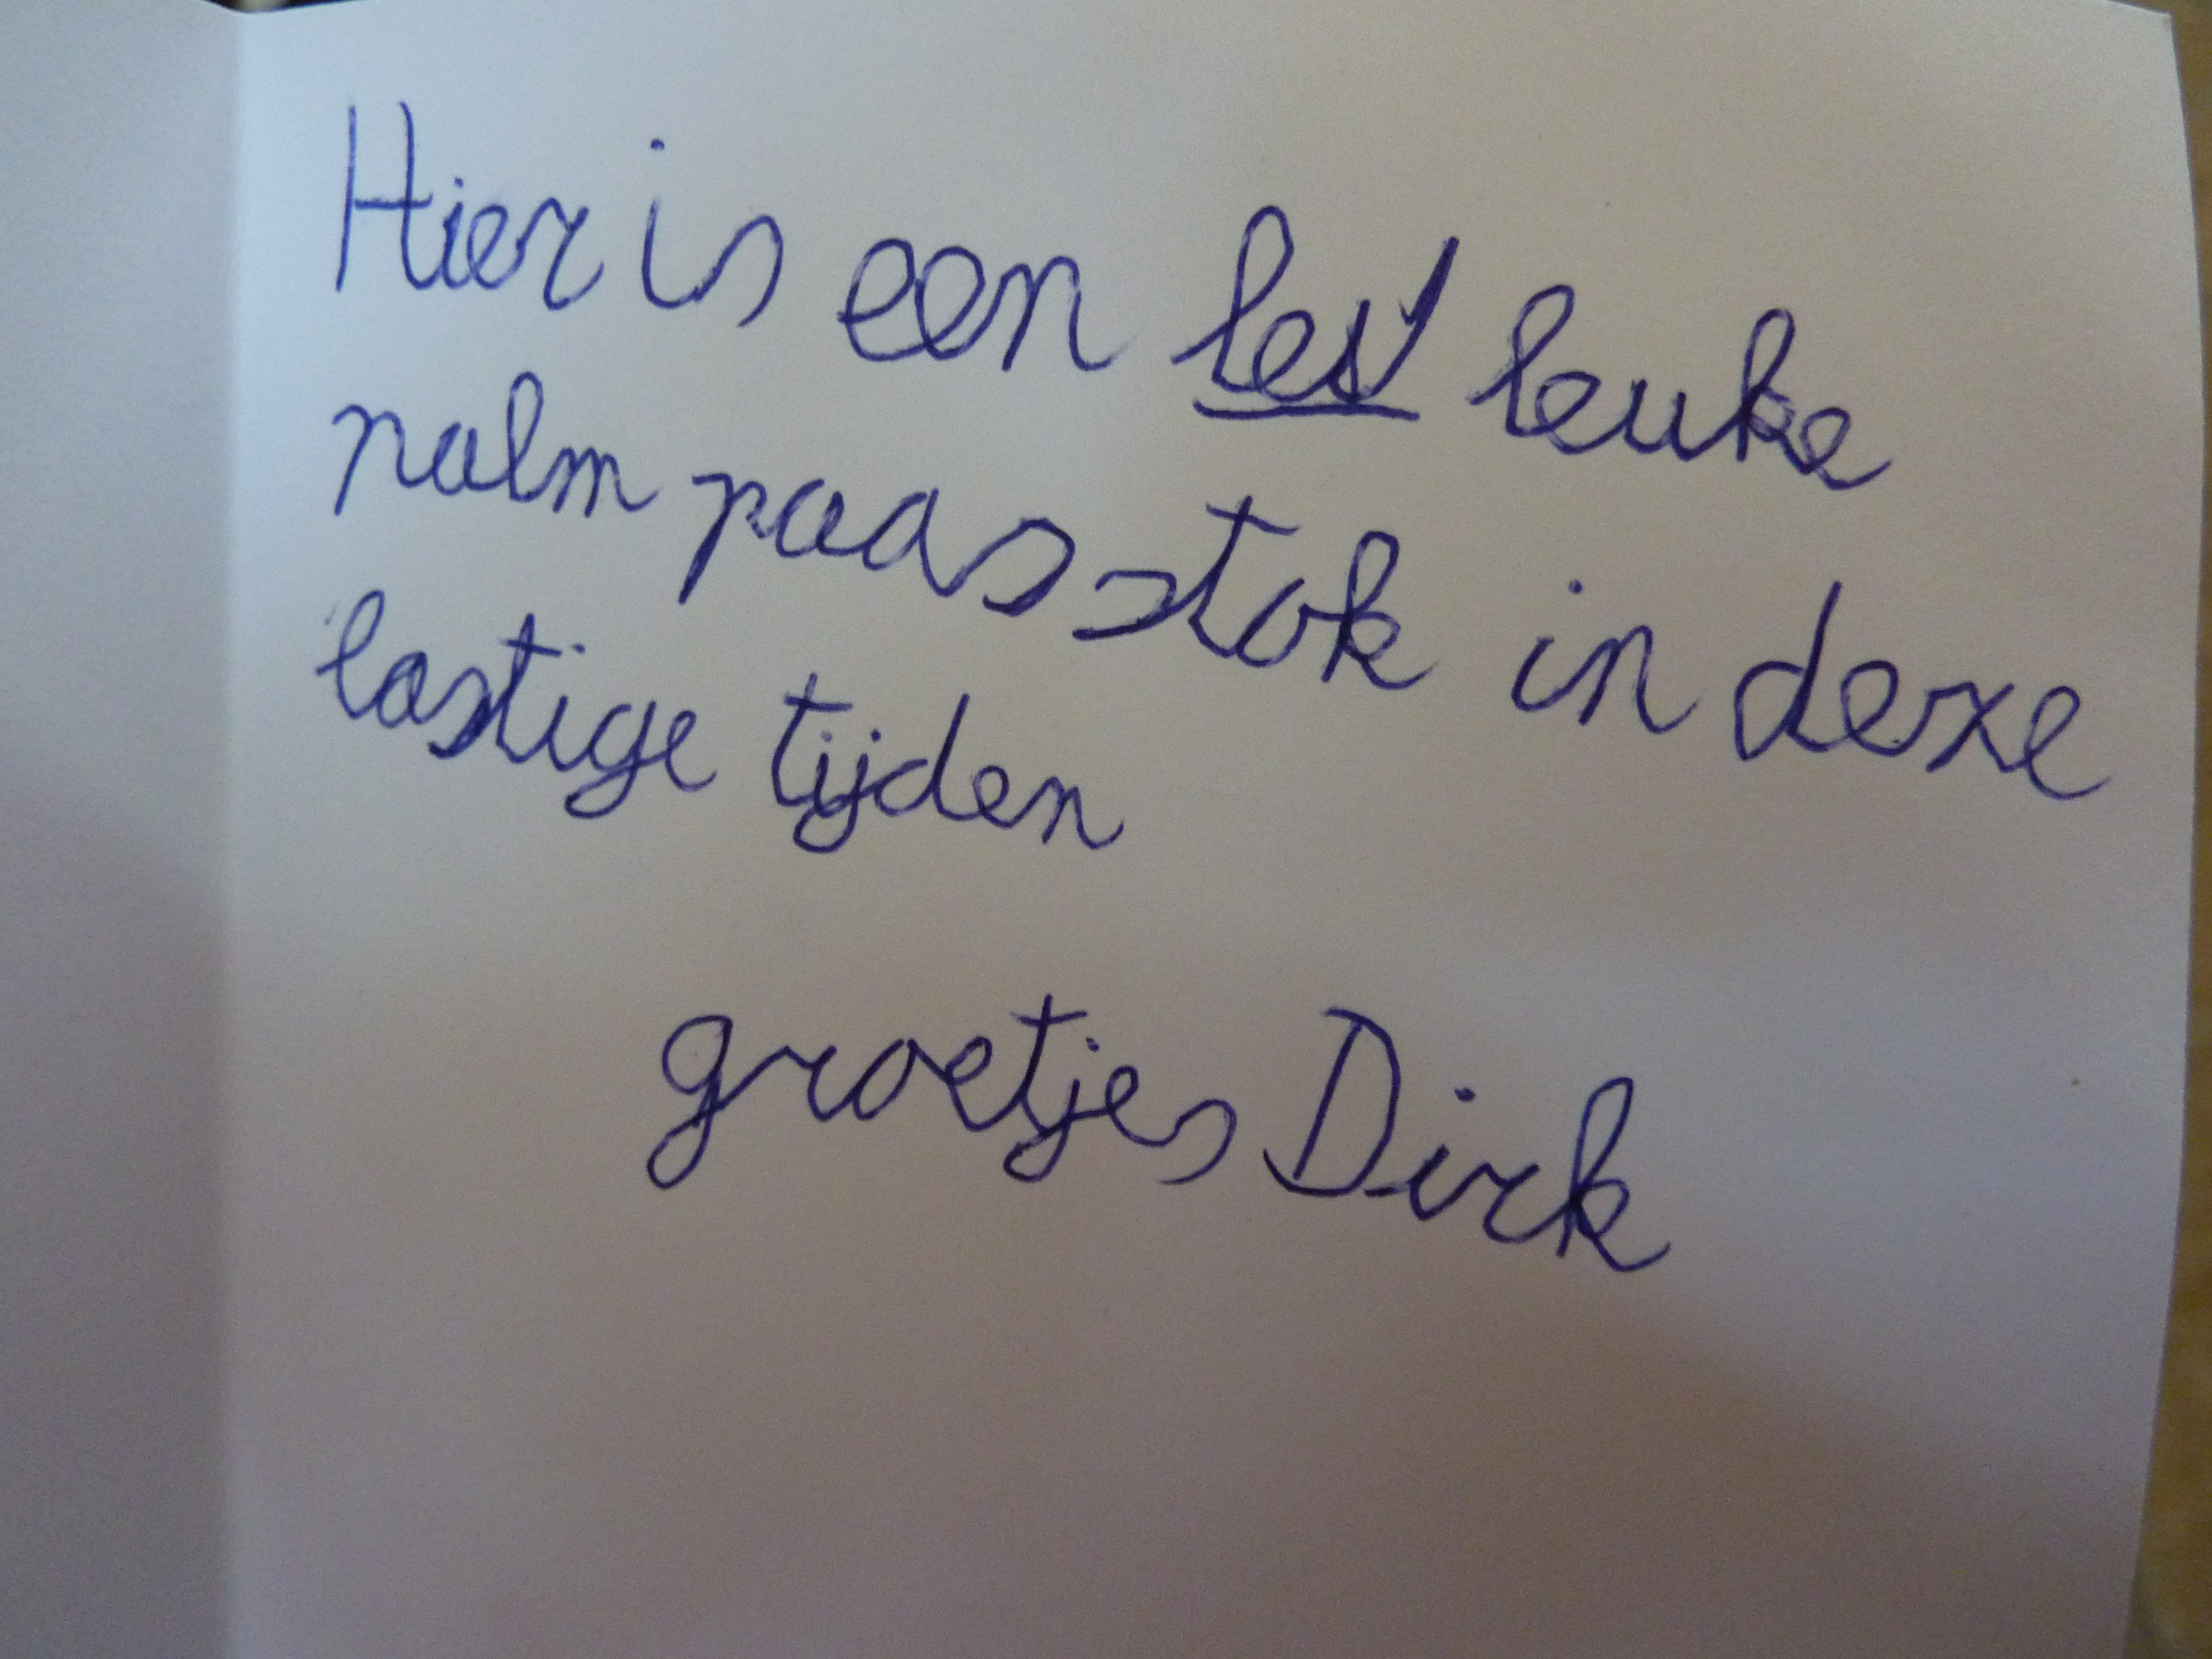 Hier is een les leuke
palm paasstok in deze
lastige tijden
groetjes Dirk